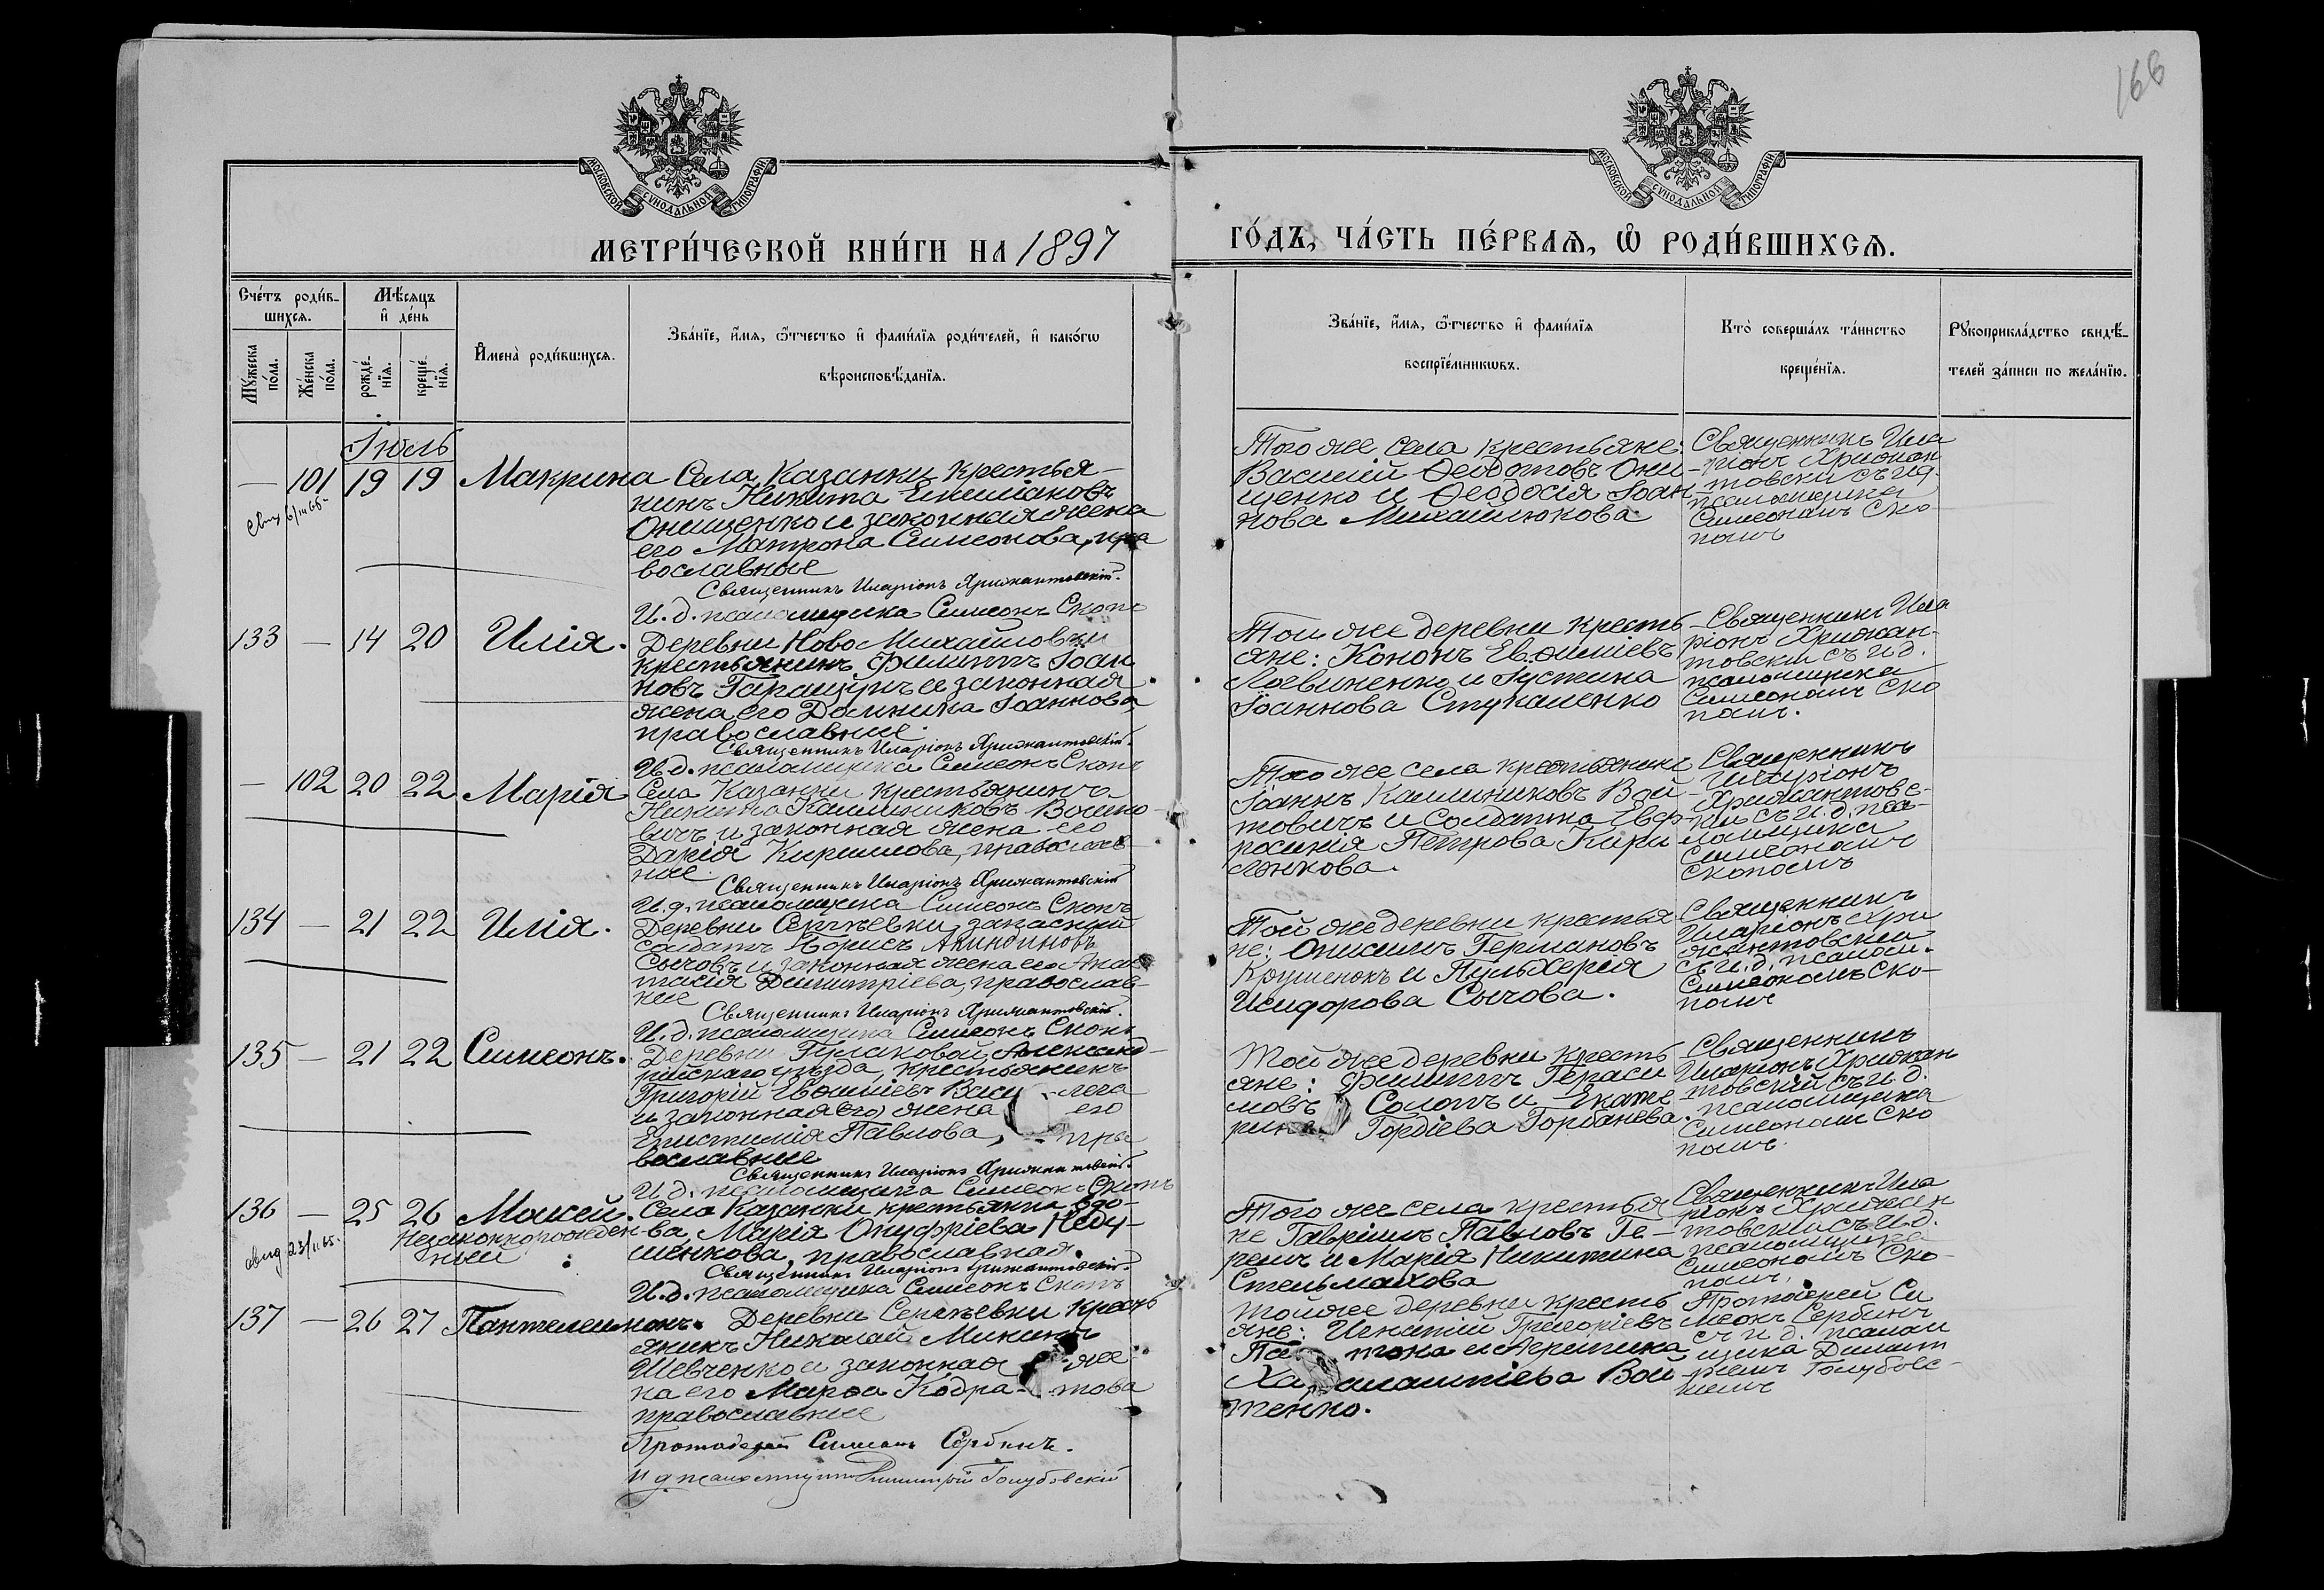 166
МОСКОВСКОЙ СѴНОДАЛЬНОЙ ТИПОГРАФІИ
МОСКОВСКОЙ СѴНОДАЛЬНОЙ ТИПОГРАФІИ
МЕТРИ́ЧЕСКОЙ КНИ́ГИ НА 1897
ГО́ДЪ, ЧА́СТЬ ПЕ́РВАѦ, Ѽ РОДИ́ВШИХСѦ.
Сче́тъ роди́в-
шихсѧ.
Мѣ́сѧцъ
и де́нь
Мꙋ́жеска
по́ла.
Же́нска
по́ла.
рожде́-
нїѧ.
креще́-
нїѧ.
Имена̀ роди́вшихсѧ.
Зва́нїе, и́мѧ, ѻ́тчество и фами́лїѧ роди́телей, и како́гѡ
вѣроисповѣ́данїѧ.
Зва́нїе, и́мѧ, ѻ́тчество и фами́лїѧ
воспрїе́мникѡвъ.
Кто̀ соверша́лъ та́инство
креще́нїѧ.
Рꙋкоприкла́дство свидѣ́-
телей за́писи по жела́нїю.
Іюль
— 101 19 19 Макрина
Села Казанки крестья-
нинъ Никита Емиліановъ
Онищенко и законная жена
его Матрона Симеонова, пра
вославные
Священникъ Иларіонъ Хрижантовскій.
И. д. псаломщика Симеонъ Скопъ
Того же села крестьяне:
Василій Ѳеодотовъ Они-
щенко и Ѳеодосія Іоан-
нова Михайлюкова
Священникъ Ила
ріонъ Хрижан
товскій съ и д.
псаломщика
Симеономъ Ско
помъ
133 — 14 20 Илія.
Деревни Ново Михайловки
крестьянинъ Филиппъ Іоан
новъ Таращукъ и законная
жена его Домника Іоаннова
православные.
Священникъ Иларіонъ Хрижантовскій.
И. д. псаломщика Симеонъ Скопъ
Той же деревни кресть
яне: Кононъ Евѳиміевъ
Логвиненко и Іустина
Іоаннова Стукаленко
Священникъ Ила
ріонъ Хрижан-
товскій съ и д.
псаломщика
Симеономъ Ско
помъ.
— 102 20 22 Марія
Села Казанки крестьянинъ
Никита Каллиниковъ Войто
вичъ и законная жена его
Дарія Кириллова, православ
ные.
Священникъ Иларіонъ Хрижантовскій
И. д. псаломщика Симеонъ Скопъ
Того же села крестьянинъ
Іоаннъ Каллиниковъ Вой
товичъ и солдатка Евф
росинія Петрова Кири
ленкова.
Священникъ
Иларіонъ
Хрижантовс-
кій съ и. д. пса-
ломщика
Симеономъ
Скопомъ
134 — 21 22 Илія.
Деревни Сергѣевки, запасный
солдатъ Борисъ Акиндиновъ
Сычовъ и законная жена его Анас
тасія Димитріева, православ-
ные
Священникъ Иларіонъ Хрижантовскій.
И. д. псаломщика Симеонъ Скопъ
Той же деревни крестья
не: Онисимъ Германовъ
Крушенокъ и Пульхерія
Исидорова Сычова.
Священникъ
Иларіонъ Хри
жантовскій
съ и. д. псалом.
Симеономъ Ско-
помъ
135 — 21 22 Симеонъ.
Деревни Александ-
рійскаго уѣзда, крестьянинъ
Григорій Евѳиміевъ
и законная его жена его
Епистимія Павлова, пра
вославные
Священникъ Иларіонъ Хрижантовскій.
И. д. псаломщика Симеонъ Скопъ
Той же деревни кресть
яне: Филиппъ Гераси
мовъ Соломъ и Екате
рина Гордіева Горбанева.
Священникъ
Иларіонъ Хрижан
товскій съ и д.
псаломщика
Симеономъ Ско
помъ.
136 — 25 26 Моисей.
незаконнорожден-
ный
Села Казанки крестьянка вдо-
ва Марія Онуфріева Неду-
шенкова, православная.
Священникъ Иларіонъ Хрижантовскій.
И. д. псаломщика Симеонъ Скопъ
Того же села крестья
не Гавріилъ Павловъ Ге-
регъ и Марія Никитина
Стельмахова
Священникъ Ила
ріонъ Хрижан
товскій съ и. д.
псаломщика
Симеономъ Ско-
помъ,
137 — 26 27 Пантелеимонъ.
Деревни Сергѣевки кресть
янинъ Николай Мининъ
Шевченко и законная же-
на его Марѳа Кодра-това
православные
Протоіерей Симеонъ Сербинъ.
И д псаломщика Димитрій Голубовскій
Той же деревни кресть
яне: Игнатій Григоріевъ
и Агрипина
Харалампіева Вой
тенко.
Протоіерей Си
меонъ Сербинъ
съ и д. псалом
щика Димит
ріемъ Голубовс-
кимъ